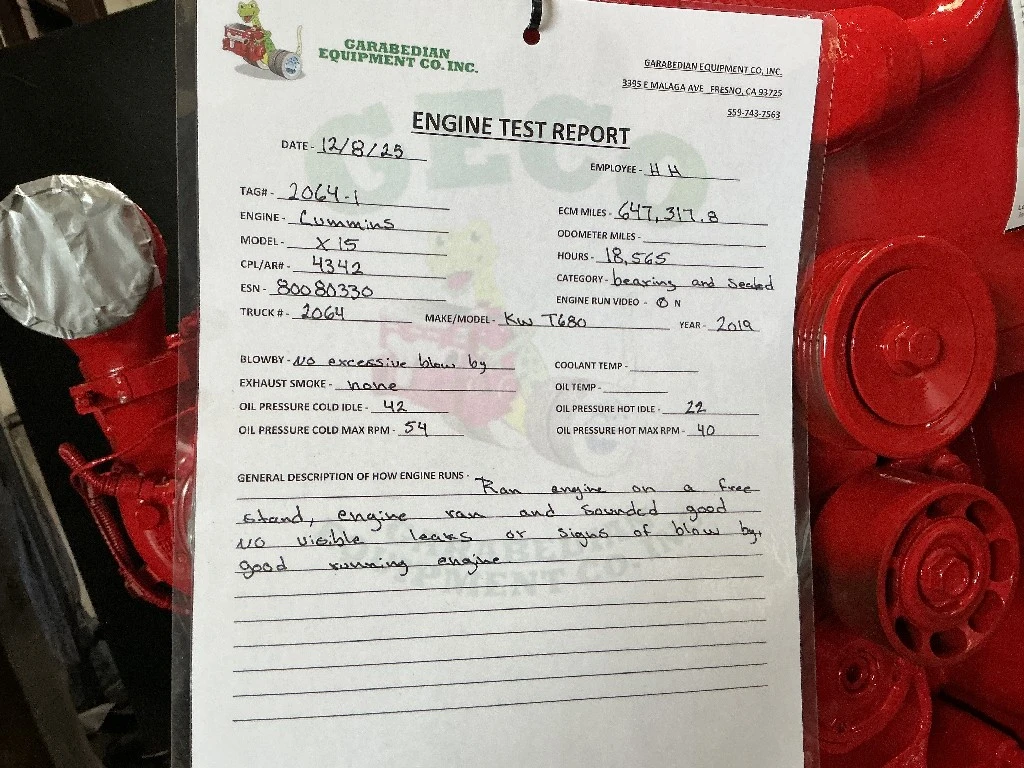 GARABEDIAN
EQUIPMENT CO. INC.
GARABEDIAN EQUIPMENT CO, INC.
3395 E MALAGA AVE FRESNO, CA 93725
559-743-7563
GECO
ENGINE TEST REPORT
DATE - 12/8/25
EMPLOYEE - H H
TAG# - 2064-1
ECM MILES - 647,317.8
ENGINE - Cummins
ODOMETER MILES -
MODEL - X 15
HOURS - 18,565
CPL/AR# - 4342
CATEGORY - bearing and sealed
ESN - 80080330
ENGINE RUN VIDEO - N
TRUCK # - 2064 MAKE/MODEL - KW T680 YEAR - 2019
BLOWBY - NO excessive blow by
COOLANT TEMP -
EXHAUST SMOKE - none
OIL TEMP -
OIL PRESSURE COLD IDLE - 42
OIL PRESSURE HOT IDLE - 22
OIL PRESSURE COLD MAX RPM - 54
OIL PRESSURE HOT MAX RPM - 40
GENERAL DESCRIPTION OF HOW ENGINE RUNS - Ran engine on a free
stand, engine ran and sounded good
NO visible leaks or signs of blow by,
good running engine